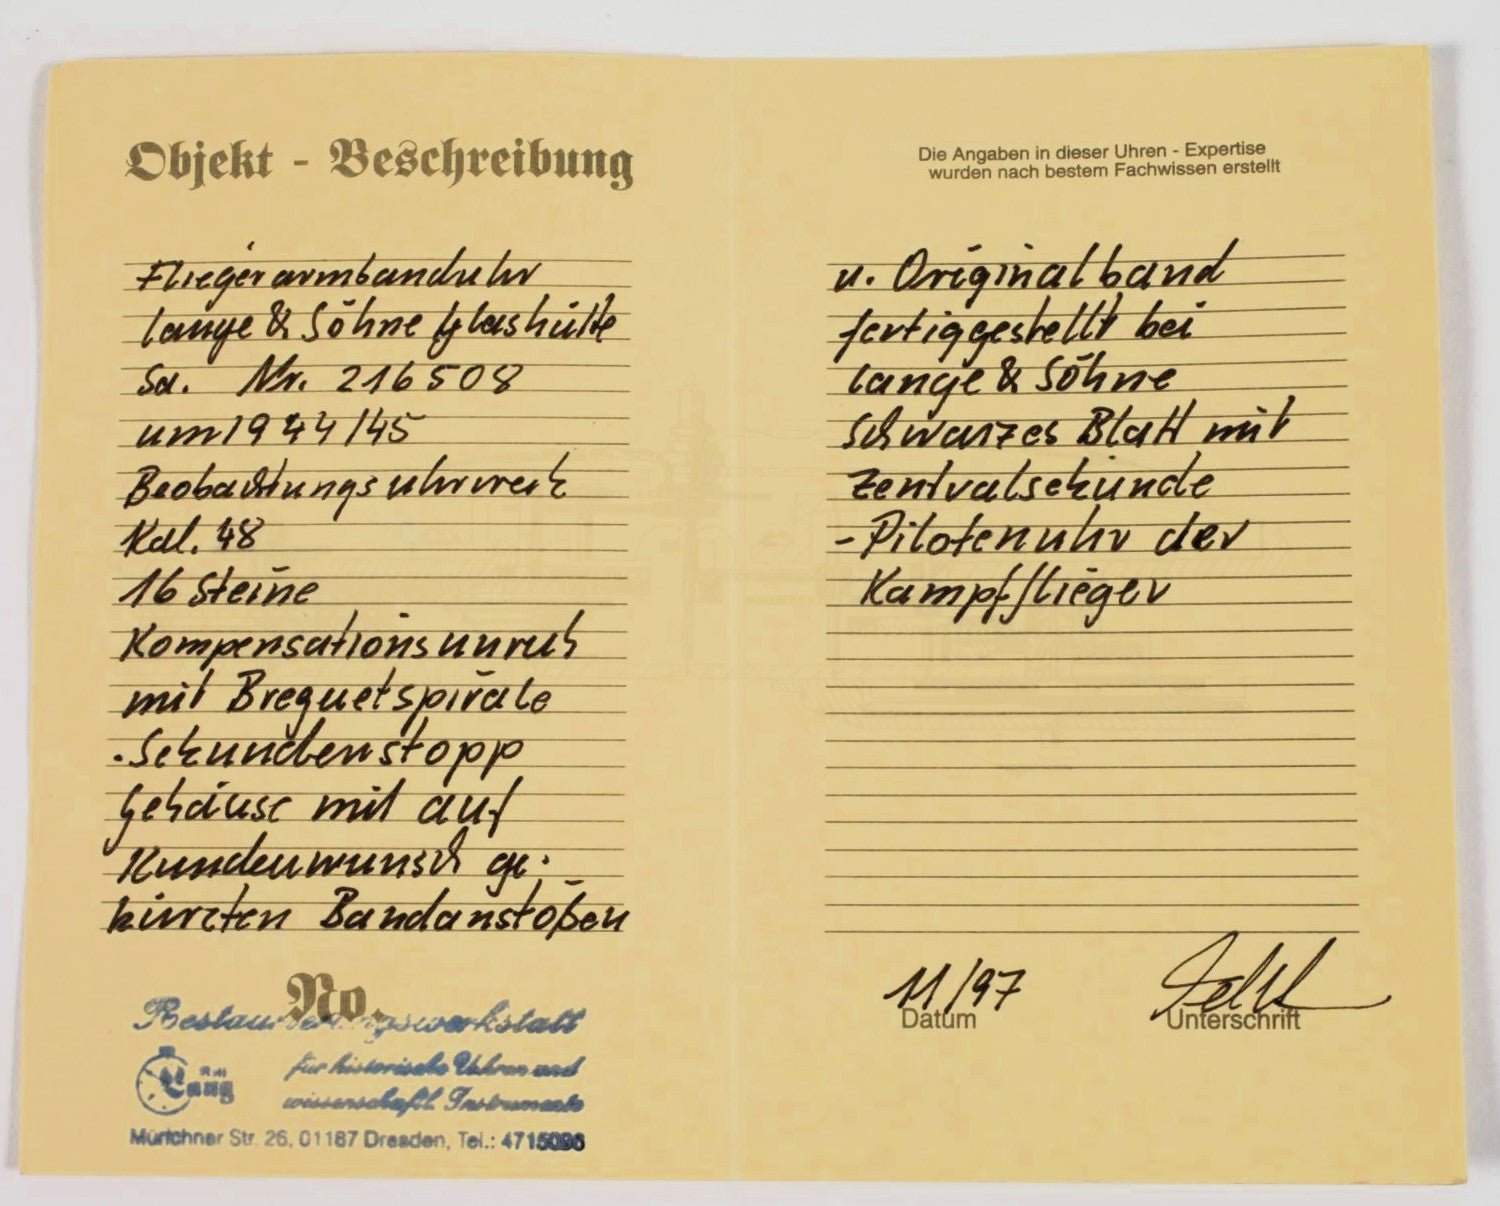 Objekt - Beschreibung
Fliegerarmbanduhr
Lange & Söhne Glashütte
Sa. Nr. 216508
um 1944/45
Beobachtungsuhrwerk
Kal. 48
16 Steine
Kompensationsunruh
mit Breguetspirale
·Sekundenstopp
Gehäuse mit auf
Kundenwunsch ge-
kürzten Bandanstößen
No.
Restaurierungswerkstatt
für historische Uhren und
wissenschaftl. Instrumente
Lang
Münchner Str. 26, 01187 Dresden, Tel.: 4715096
Die Angaben in dieser Uhren - Expertise
wurden nach bestem Fachwissen erstellt
u. Originalband
fertiggestellt bei
Lange & Söhne
Schwarzes Blatt mit
Zentralsekunde
-Pilotenuhr der
Kampfflieger
11/97
Datum
Unterschrift